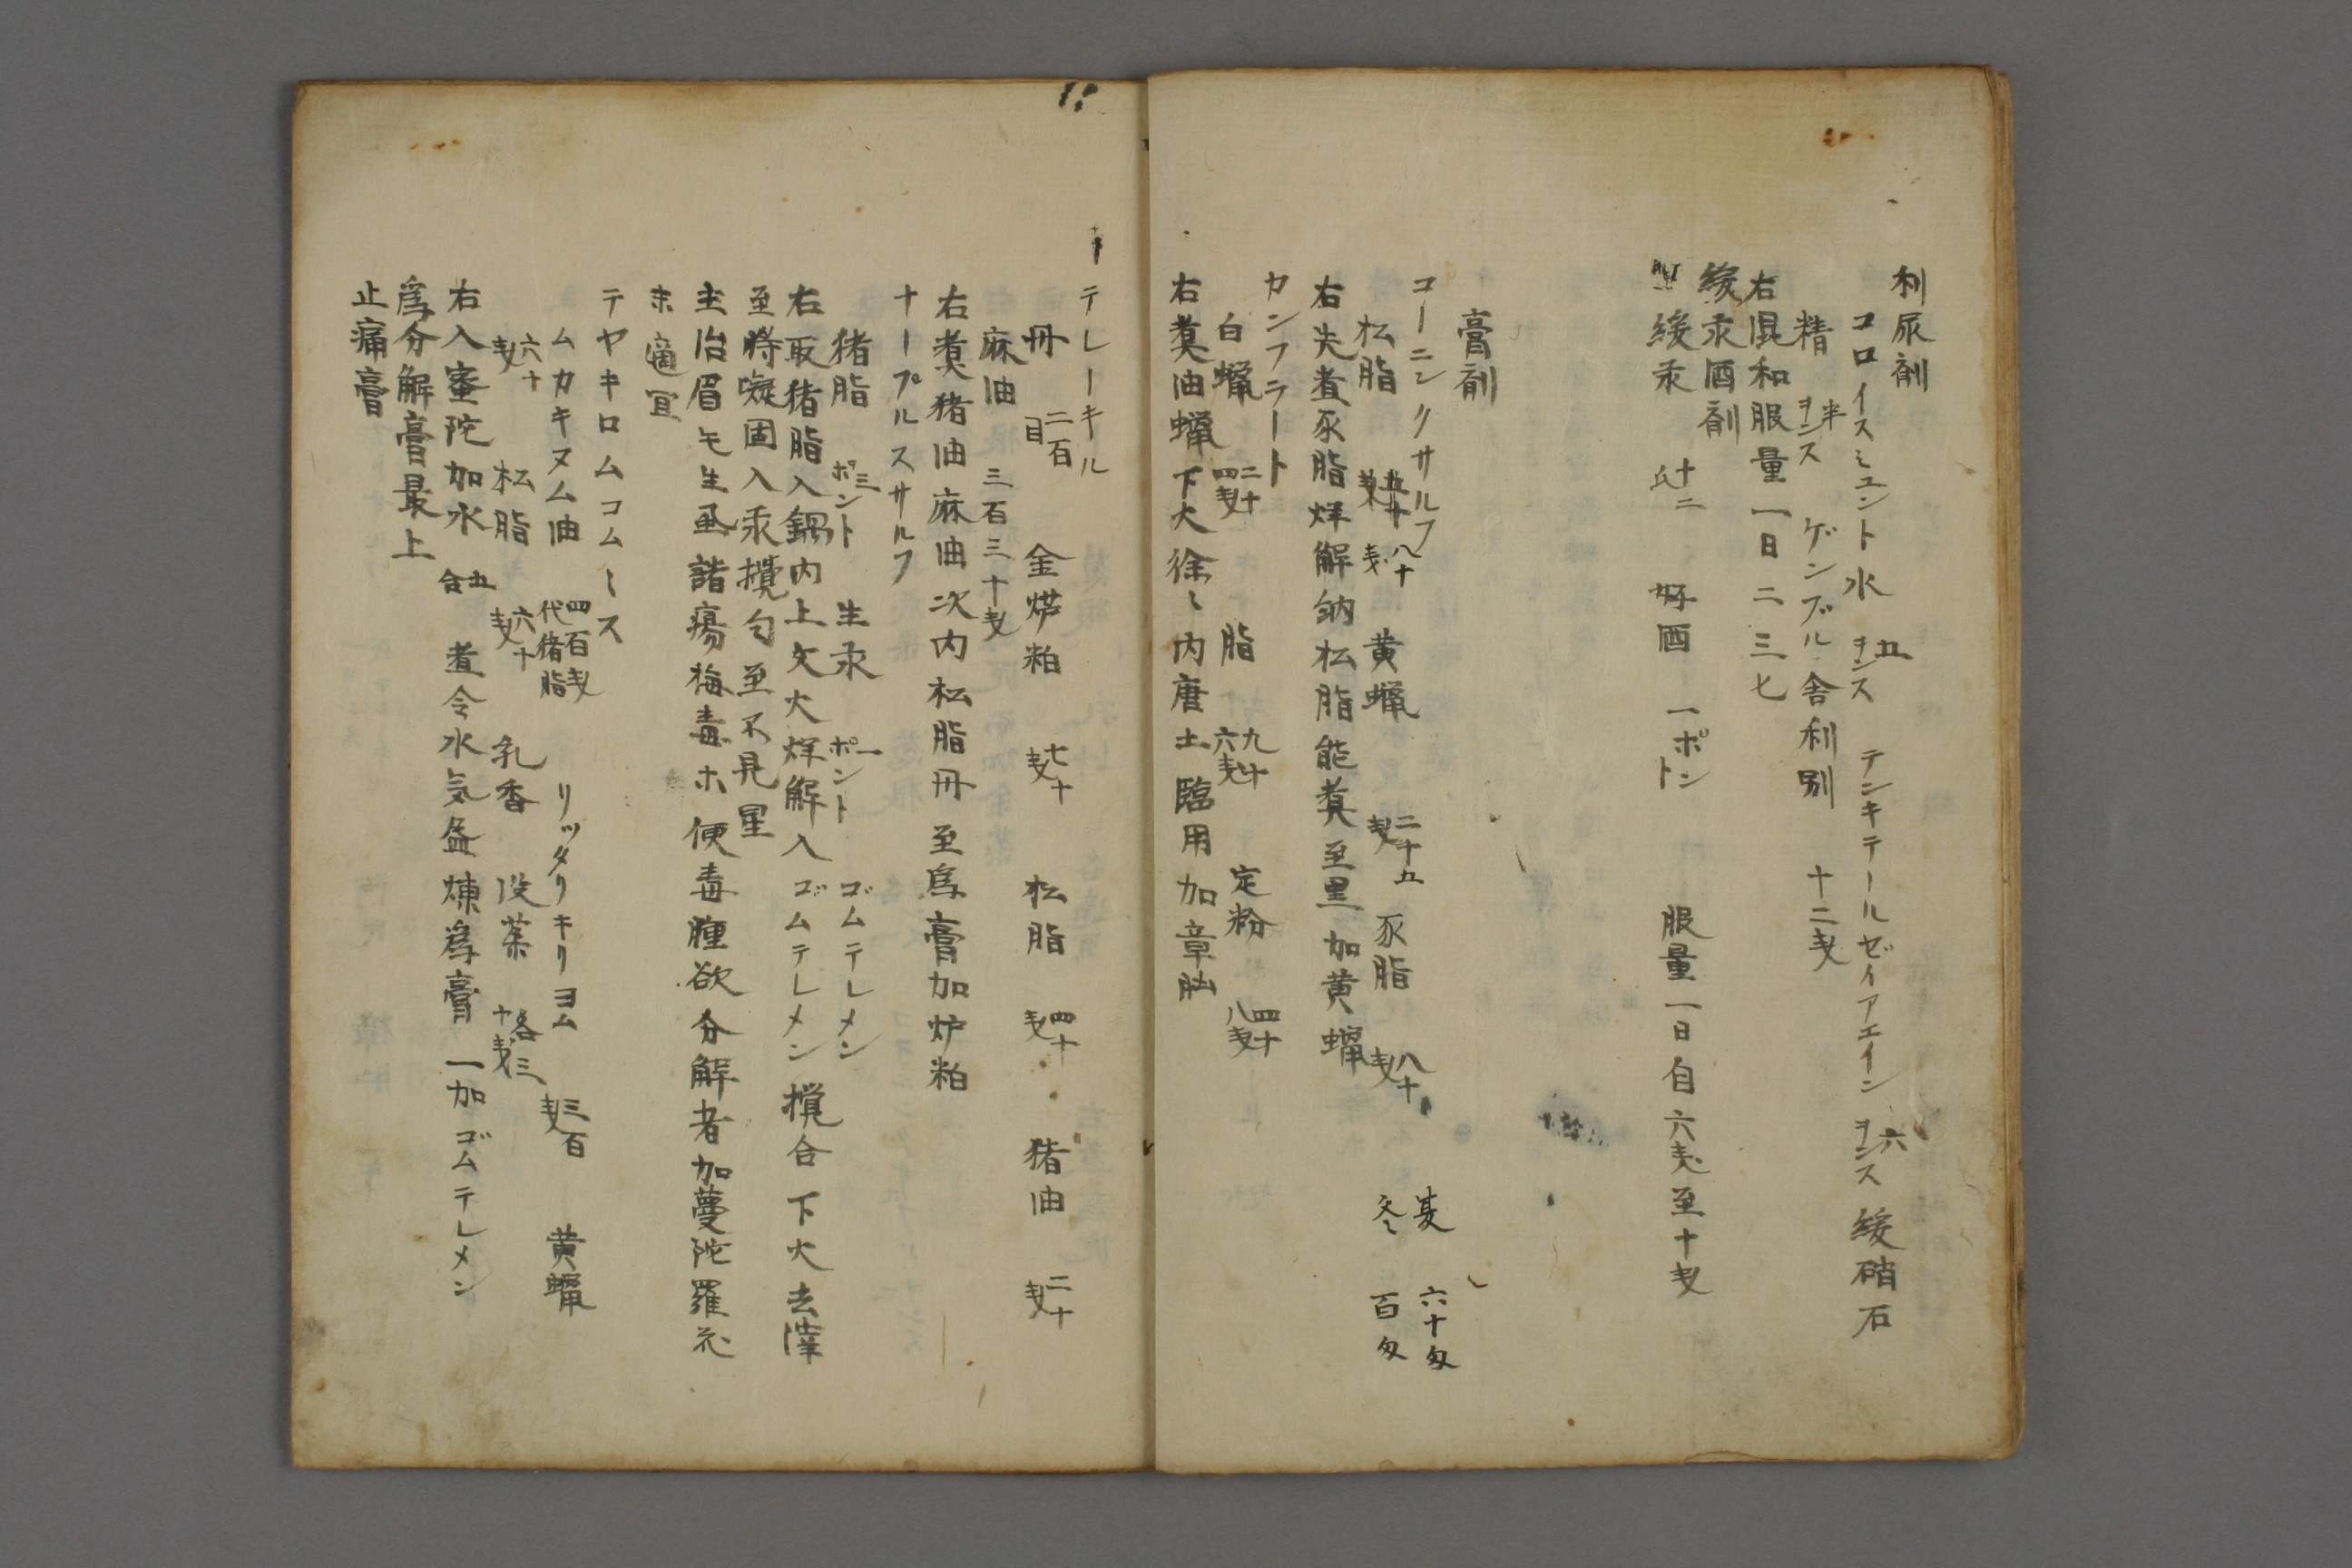 利尿剤
コロイスミユント水 五ヲンス テンキテールゼイアエイン 六ヲンス 緩硝石
精 半ヲンス ゲンブル舎利別 十二戔
右混和服量一日二三七
緩汞酒剤
緩汞 十二氏 好酒 一ポント 服量一日自六戔至十戔
膏剤
コーニンクサルフ
松脂 八十戔 黄蝋 二十五戔 豕脂 八十戔 夏 六十匁 冬 百匁
右先煮豕脂烊解納松脂能煮至黒加黄蝋
カンフラート
白蝋 二十四戔 脂 九十六戔 定粉 四十八戔
右煮油蝋下火徐々内唐土臨用加章脳
テレーキル
丹 二百目 金炉粕 七十戔 松脂 四十戔 猪油 二十戔
麻油 三百三十戔
右煮猪油麻油次内松脂丹至為膏加炉粕
ナープルスサルフ
猪脂 三ポント 生汞 一ポント ゴムテレメン
右取猪脂入鍋内上文火烊解入ゴムテレメン攪合下火去滓
至将凝固入汞攪匀至不見星
主治眉毛生虱諸瘍梅毒ホ便毒腫欲分解者加蔓陀羅花
末適宜
テヤキロムコムヽス
ムカキヌム油 四百戔 代猪脂 リッタリキリヨム 三百戔 黄蝋
六十戔 松脂 六十戔 乳香 没薬 各三十戔
右入蜜陀加水 五合 煮令水気盡煉為膏 一加ゴムテレメン
為分解膏最上
止痛膏